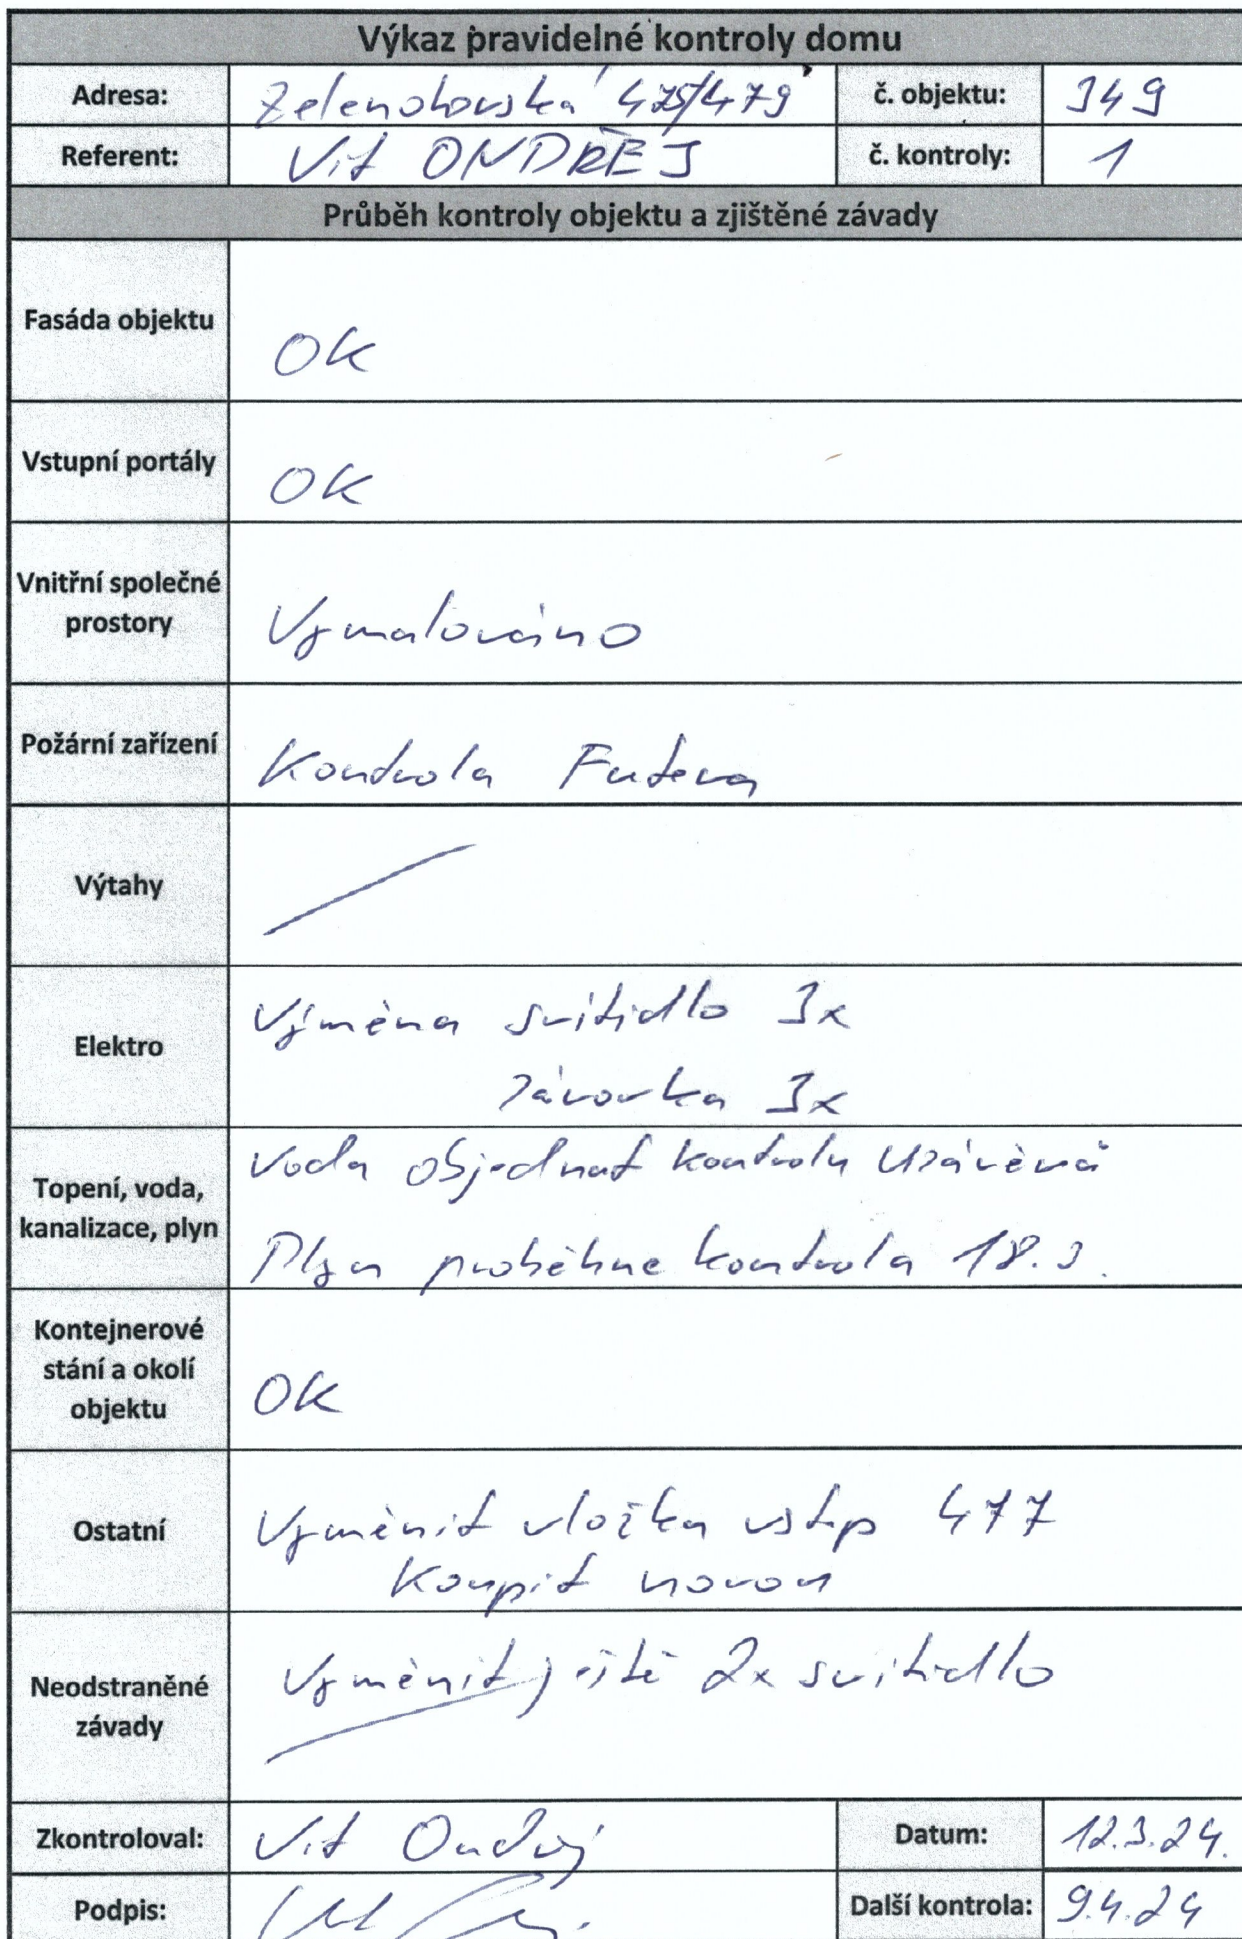 Výkaz pravidelné kontroly domu
Adresa: Zelenohorská 475/479 č. objektu: 349
Referent: Vít ONDŘEJ č. kontroly: 1
Průběh kontroly objektu a zjištěné závady
Fasáda objektu OK
Vstupní portály OK
Vnitřní společné
prostory Vymalováno
Požární zařízení Kontrola
Výtahy
Elektro
Výměna svítidlo 3x
žárovka 3x
Topení, voda,
kanalizace, plyn
Voda objednat kontrolu
Plyn proběhne kontrola 18.3.
Kontejnerové
stání a okolí
objektu
OK
Ostatní
Vyměnit vložka vstup 477
Koupit novou
Neodstraněné
závady
Vyměnit ještě 2x svítidlo
Zkontroloval: Vít Ondřej Datum: 12.3.24.
Podpis: Další kontrola: 9.4.24